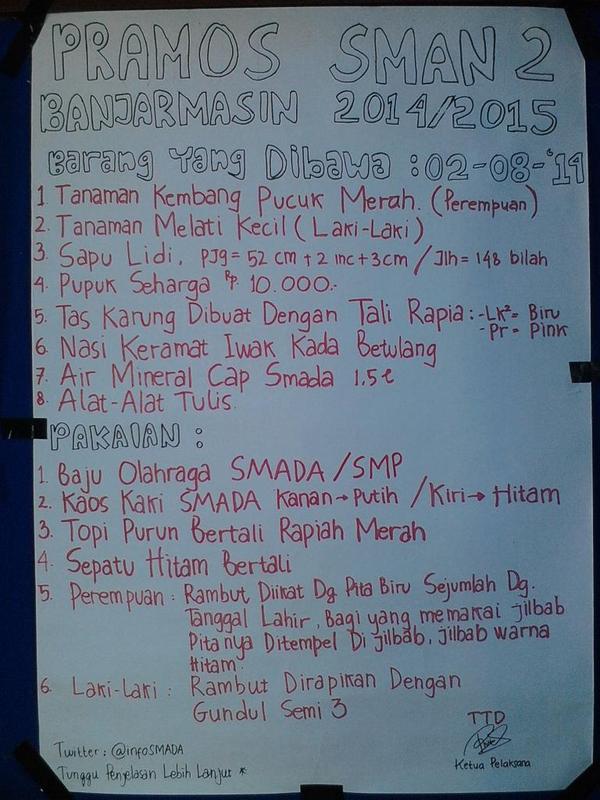 PRAMOS SMAN 2
BANJARMASIN 2014/2015
Barang Yang Dibawa : 02-08-'14
1 Tanaman Kembang Pucuk Merah. (Perempuan)
2. Tanaman Melati Kecil (Laki-Laki)
3 Sapu Lidi, PJg = 52 cm + 2 inc + 3cm / Jlh = 148 bilah
4. Pupuk Seharga Rp. 10.000.-
5. Tas Karung Dibuat Dengan Tali Rapia : - Lk² = Biru
- Pr = Pink
6. Nasi Keramat Iwak Kada Betulang
7. Air Mineral Cap Smada 1.5 ℓ
8. Alat-Alat Tulis.
PAKAIAN :
1. Baju Olahraga SMADA / SMP
2. Kaos Kaki SMADA Kanan → Putih / Kiri → Hitam
3. Topi Purun Bertali Rapiah Merah
4. Sepatu Hitam Bertali
5. Perempuan : Rambut Diikat Dg Pita Biru Sejumlah Dg.
Tanggal Lahir, Bagi yang memakai jilbab
Pita nya Ditempel Di jilbab, jilbab warna
Hitam.
6. Laki-Laki : Rambut Dirapikan Dengan
Gundul Semi 3
TTD
Ketua Pelaksana
Twitter : @infoSMADA
Tunggu Penjelasan Lebih Lanjut *